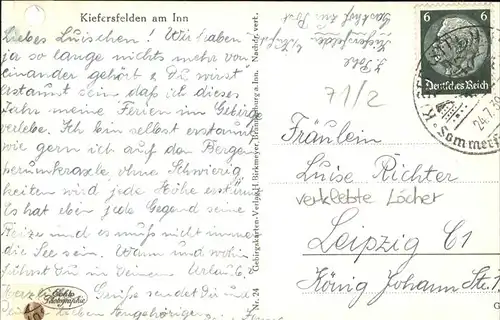 Kiefersfelden am Inn
Liebes Luischen! Wir haben
ja so lange nichts mehr von
einander gehört & Du wirst
erstaunt sein daß ich dieses
Jahr meine Ferien im Gebirge
verlebe. Ich bin selbst erstaunt
wie gern ich auf den Bergen
herumkraxle, ohne Schwierig
keiten wird jede Höhe erstürmt
Es hat eben jede Gegend seine
Reize und es muß nicht immer
die See sein. Wann und wohin
fährst Du in Deinem Urlaub?
Herzliche Grüße sendet Dir und
Deinen lieben Angehörigen
Photographie
Nr. 24 Gebirgskarten-Verlag H. Birkmeyer, Brannenburg a. Inn. Nachdr. verb.
Gasthof zur Post
6 6
Deutsches Reich
24.7.
Sommerf
71/2
Fräulein
Luise Richter
verklebte Löcher
Leipzig C1
König Johann Str.